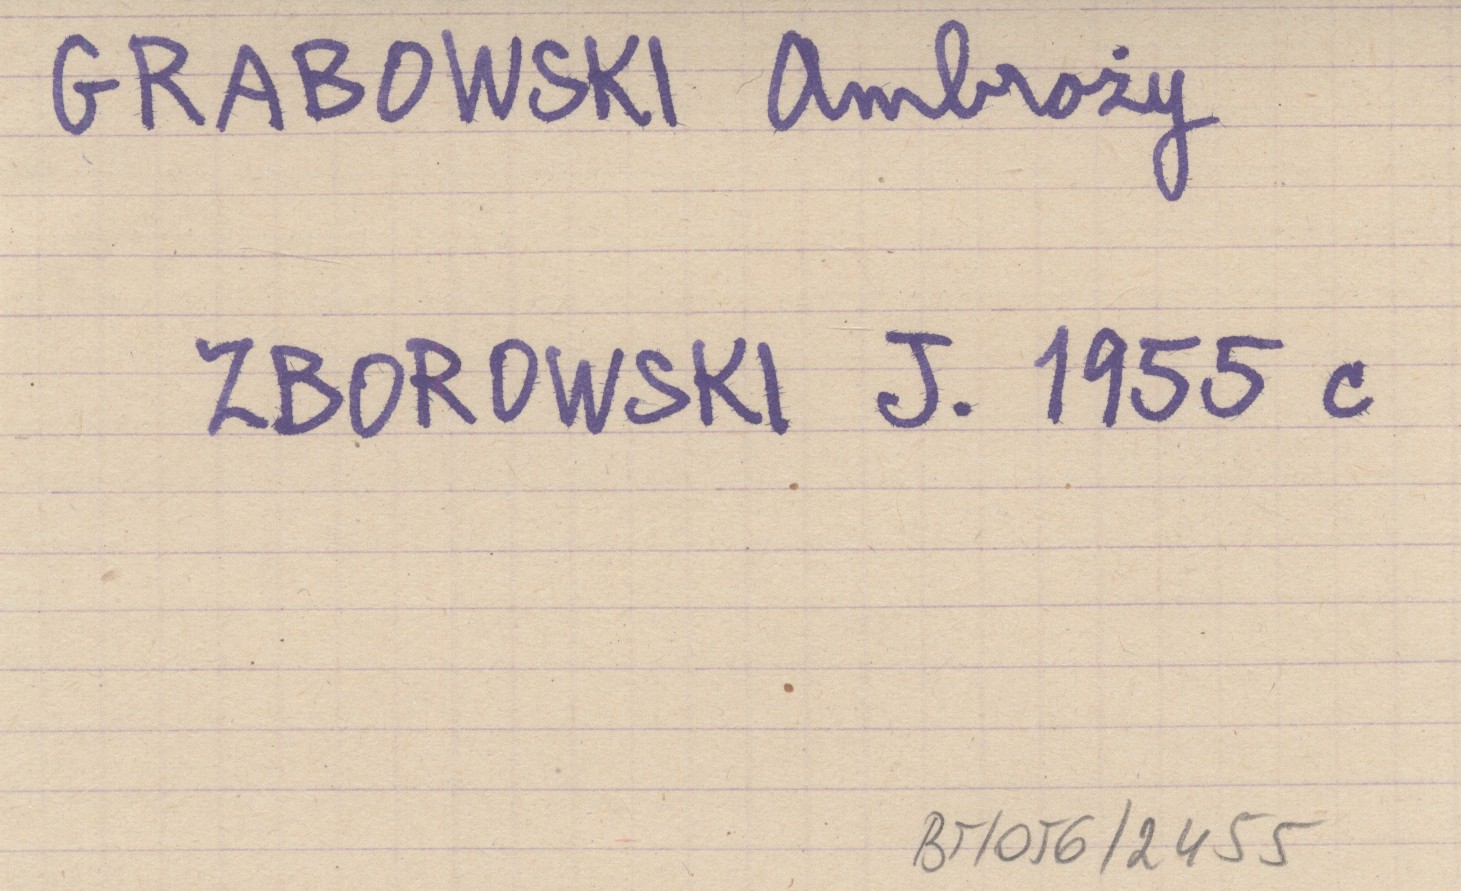 GRABOWSKI Ambroży
ZBOROWSKI J. 1955 c
B5/056/2455